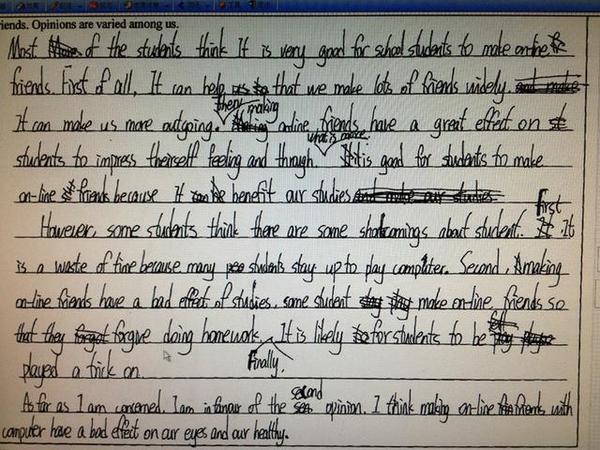 riends. Opinions are varied among us.
Most of the students think It is very good for school students to make on-line
friends. First of all, It can help that we make lots of friends widely.
then, making
It can make us more outgoing. on-line friends have a great effect on
what is more
students to impress theirself feeling and through. It is good for students to make
on-line friends because It benefit our studies
first
However, some students think there are some shortcomings about student. It
is a waste of time because many students stay up to play computer. Second, making
on-line friends have a bad effect of studies. some student make on-line friends so
that they forgive doing homework. It is likely for students to be
Finally,
played a trick on.
second
As far as I am concerned, I am in favour of the opinion. I think making on-line friends with
computer have a bad effect on our eyes and our healthy.